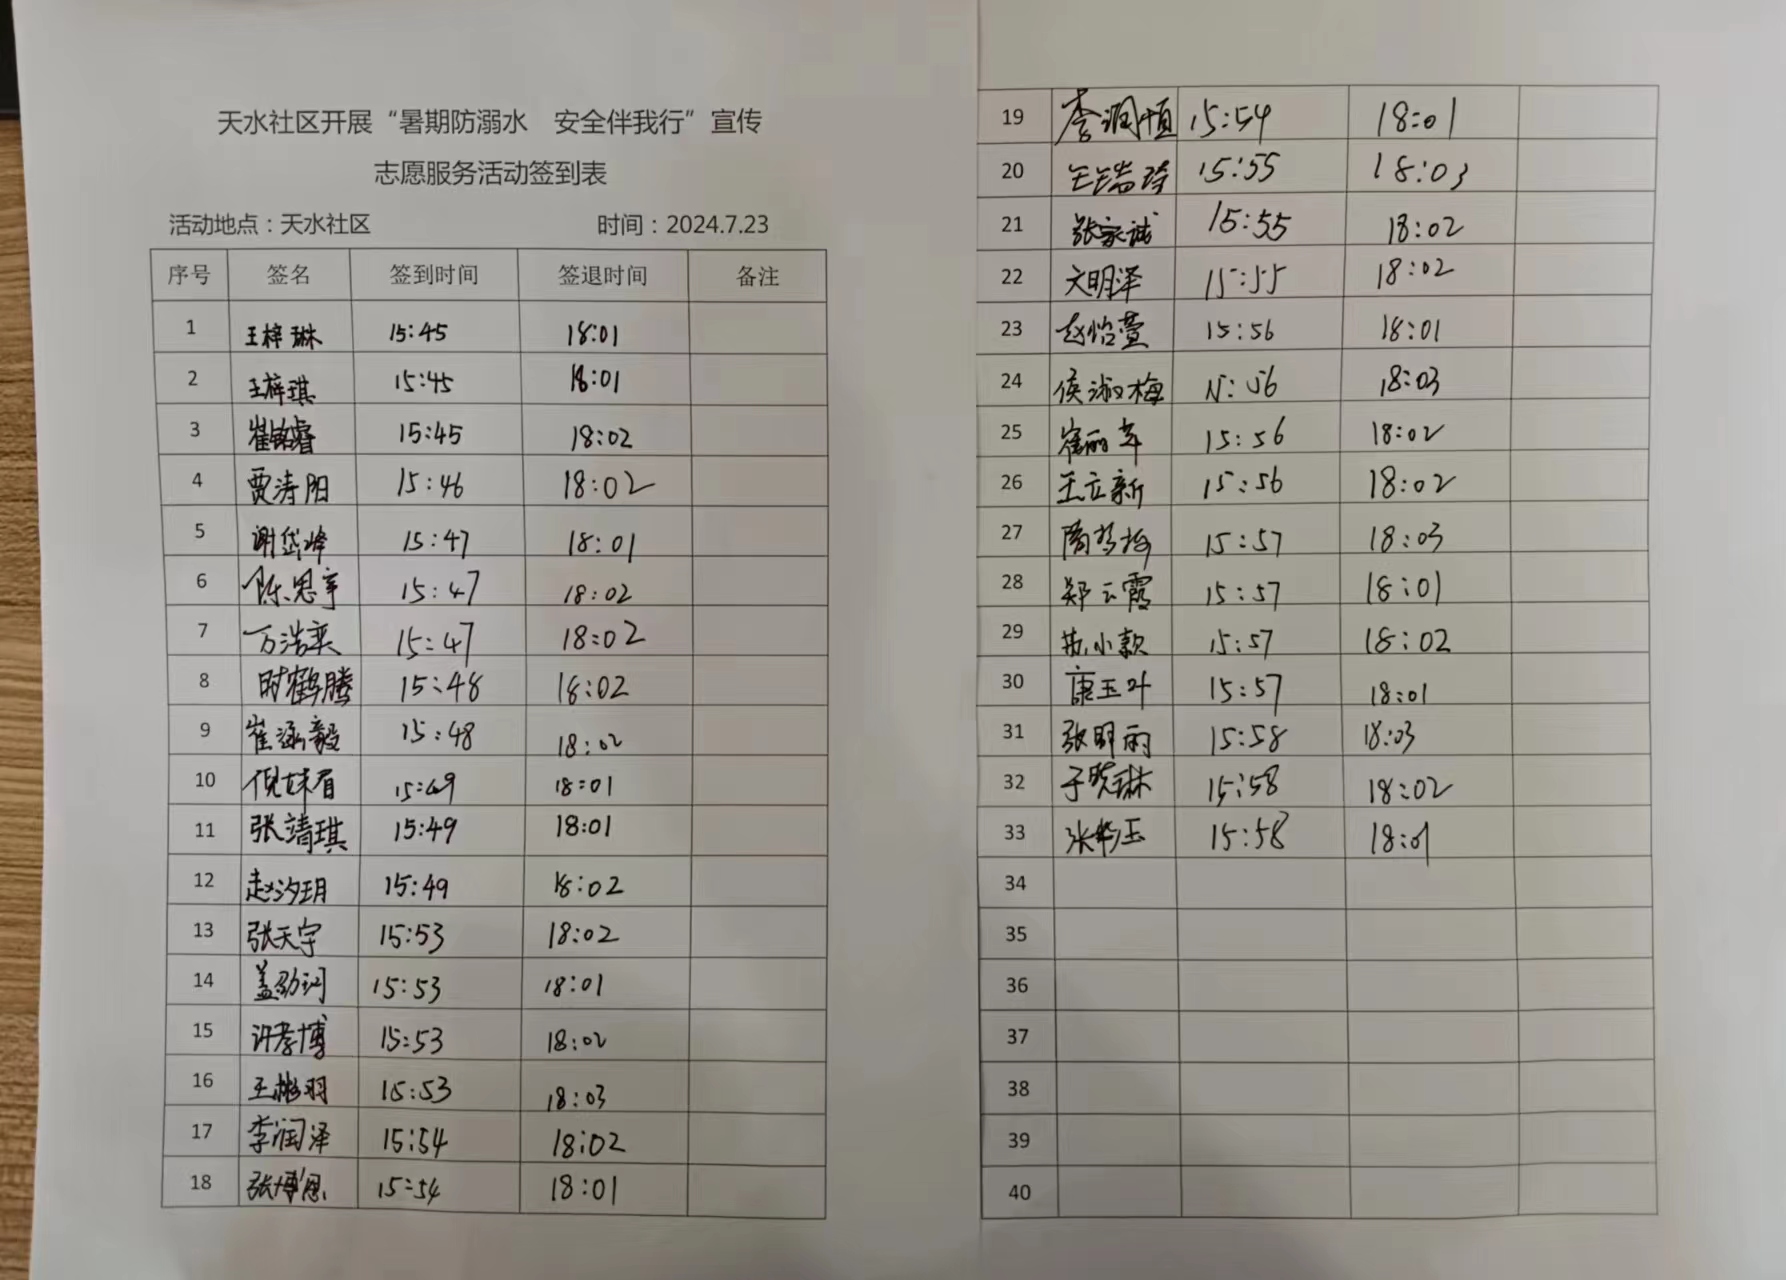 天水社区开展“暑期防溺水 安全伴我行”宣传
志愿服务活动签到表
活动地点：天水社区 时间：2024.7.23
序号 签名 签到时间 签退时间 备注
1 王梓琳 15:45 18:01
2 王梓琪 15:45 18:01
3 崔铭睿 15:45 18:02
4 贾涛阳 15:46 18:02
5 谢岱峰 15:47 18:01
6 陈思宇 15:47 18:02
7 万浩奕 15:47 18:02
8 时鹤腾 15:48 18:02
9 崔涵毅 15:48 18:02
10 倪 15:49 18:01
11 张靖琪 15:49 18:01
12 赵汐玥 15:49 18:02
13 张天宇 15:53 18:02
14 盖 15:53 18:01
15 许孝博 15:53 18:02
16 王彬羽 15:53 18:03
17 李润泽 15:54 18:02
18 张博恩 15:54 18:01
19 李润恒 15:54 18:01
20 王瑞琦 15:55 18:03
21 张家诚 15:55 18:02
22 文明泽 15:55 18:02
23 赵怡萱 15:56 18:01
24 侯淑梅 15:56 18:03
25 崔丽 15:56 18:02
26 王立新 15:56 18:02
27 15:57 18:03
28 郑云霞 15:57 18:01
29 小款 15:57 18:02
30 康玉叶 15:57 18:01
31 张明雨 15:58 18:03
32 于晓琳 15:58 18:02
33 张华玉 15:58 18:01
34
35
36
37
38
39
40